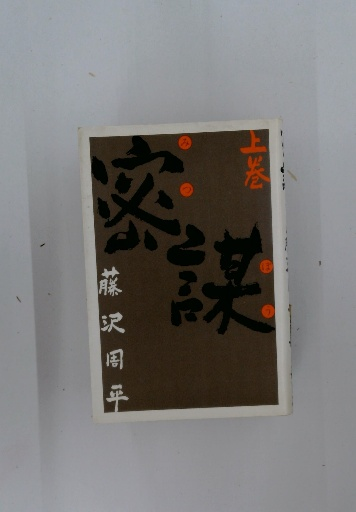 上巻
密謀
みつぼう
藤沢周平